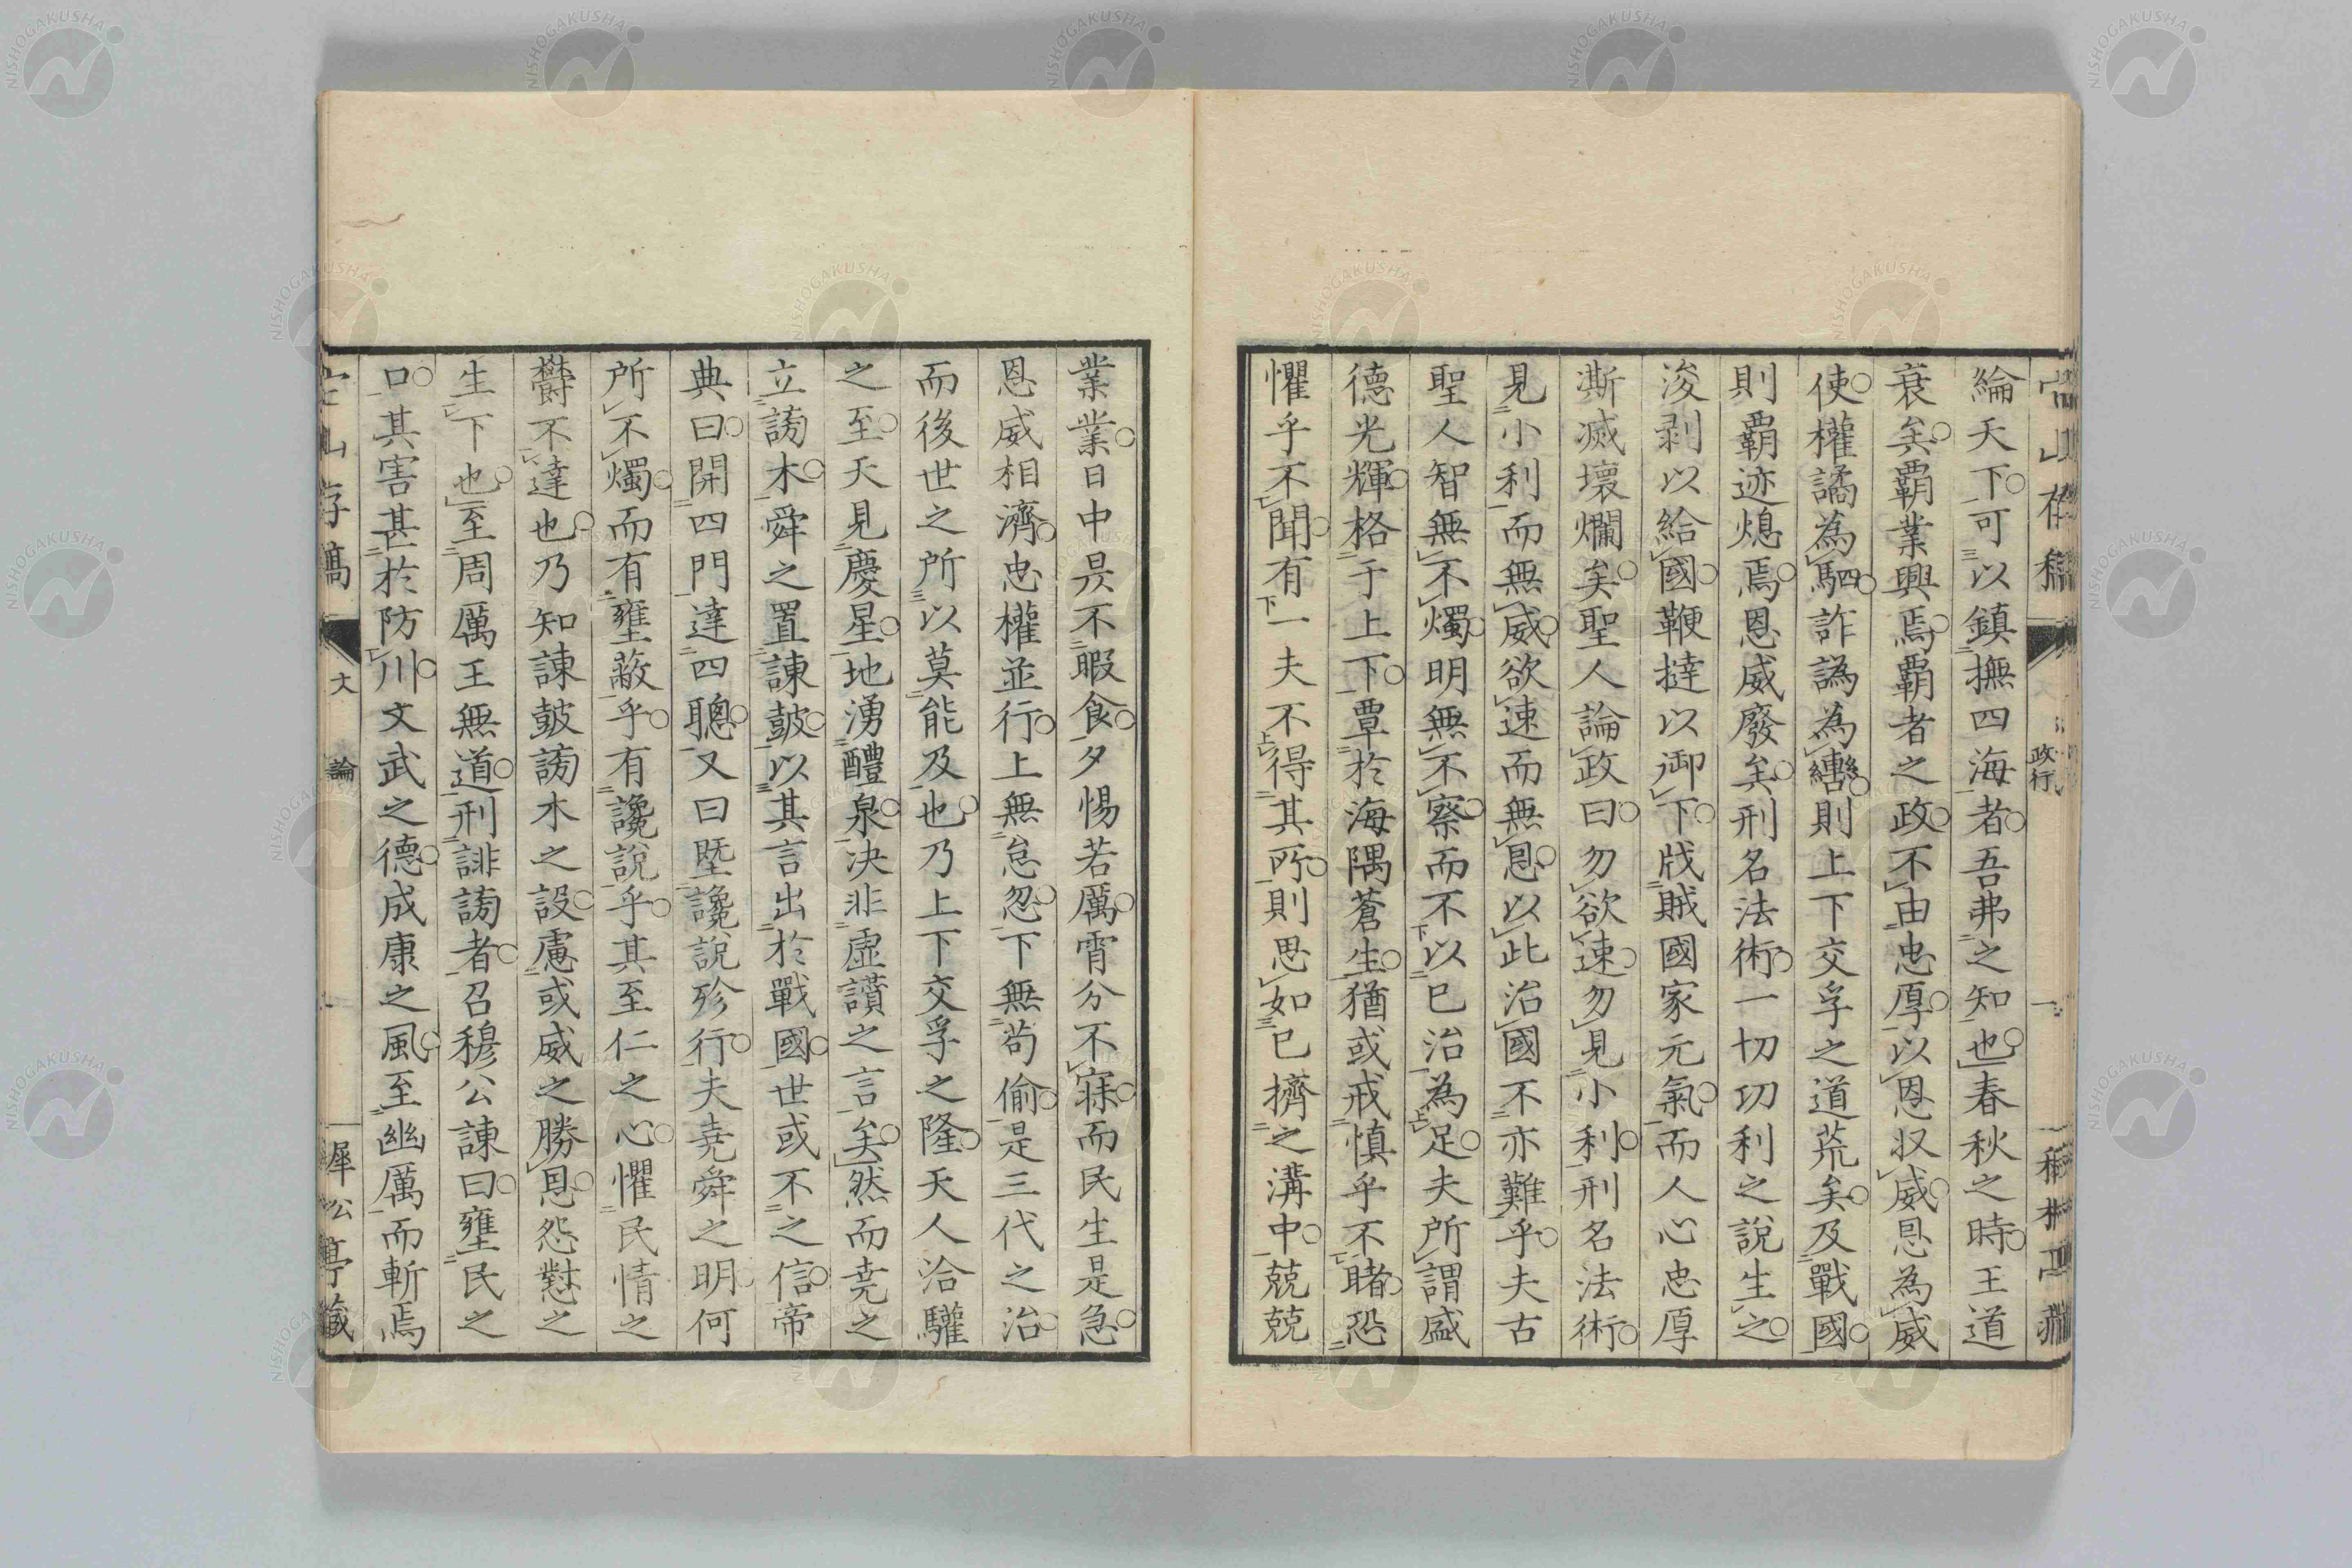 綸天下可以鎮撫四海者吾弗之知也春秋之時王道
衰矣覇業興焉覇者之政不由忠厚以恩収威恩為威
使權譎為駟詐譌為轡則上下交孚之道荒矣及戰國
則覇迹熄焉恩威廢矣刑名法術一切功利之說生之
浚剥以給國鞭撻以御下戕賊國家元氣而人心忠厚
澌滅壞爛矣聖人論政曰勿欲速勿見小利刑名法術
見小利而無威欲速而無恩以此治國不亦難乎夫古
聖人智無不燭明無不察而不以已治為足夫所謂盛
德光輝格于上下覃於海隅蒼生猶或戒慎乎不睹恐
懼乎不聞有一夫不得其所則思如已擠之溝中兢兢
業業日中昃不暇食夕惕若厲霄分不寐而民生是急
恩威相濟忠權並行上無怠忽下無苟偷是三代之治
而後世之所以莫能及也乃上下交孚之隆天人洽驩
之至天見慶星地湧醴泉决非虛讚之言矣然而尭之
立謗木舜之置諫皷以其言出於戰國世或不之信帝
典曰開四門達四聰又曰堲讒說殄行夫尭舜之明何
所不燭而有壅蔽乎有讒說乎其至仁之心懼民情之
鬱不達也乃知諫皷謗木之設慮或威之勝恩怨懟之
生下也至周厲王無道刑誹謗者召穆公諫曰壅民之
口其害甚於防川文武之德成康之風至幽厲而斬焉
山存稿
大
論
犀公亭藏
政行
NISHOGAKUSHA